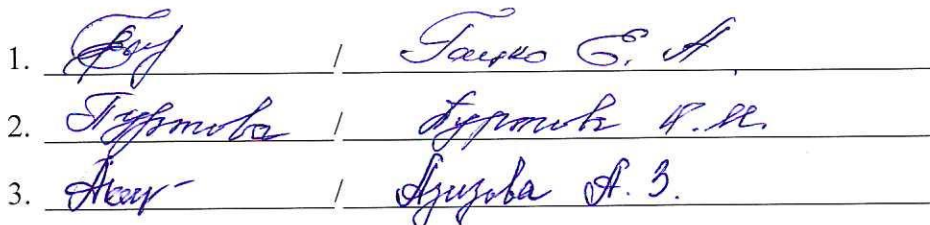 1. / Гацко Е. А
2. Пуртова / Пуртова
3. / Азизова А. З.